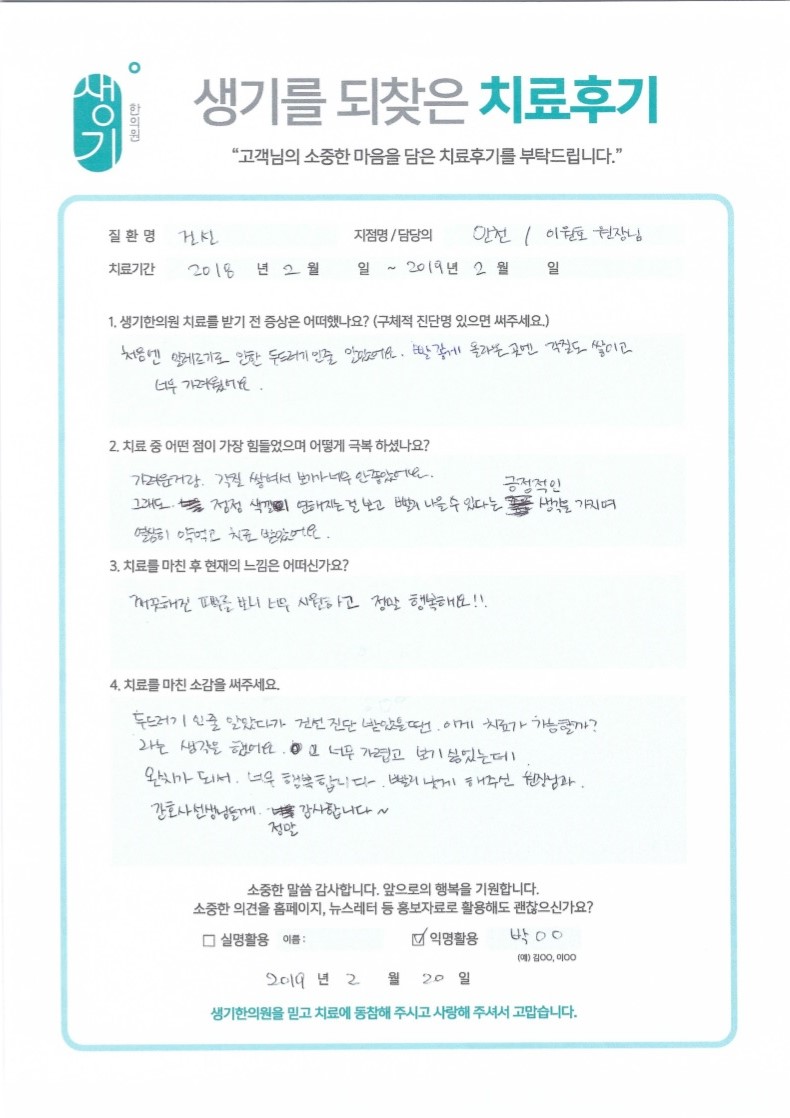 생기
한의원
생기를 되찾은 치료후기
“고객님의 소중한 마음을 담은 치료후기를 부탁드립니다.”
질 환 명 건선 지점명 / 담당의 안천 / 이원호 원장님
치료기간 2018 년 2 월 일 ~ 2019 년 2 월 일
1. 생기한의원 치료를 받기 전 증상은 어떠했나요? (구체적 진단명 있으면 써주세요.)
처음엔 알레르기로 인한 두드러기인줄 알았어요. 빨갛게 올라온 곳엔 각질도 쌓이고
너무 가려웠어요.
2. 치료 중 어떤 점이 가장 힘들었으며 어떻게 극복 하셨나요?
가려운거랑. 각질 쌓여서 보기가 너무 안좋았어요.
긍정적인
그래도 점점 색깔이 연해지는걸 보고 빨리 나을 수 있다는 생각을 가지며
열심히 약먹고 치료 받았어요.
3. 치료를 마친 후 현재의 느낌은 어떠신가요?
깨끗해진 피부를 보니 너무 시원하고 정말 행복해요!!
4. 치료를 마친 소감을 써주세요.
두드러기 인줄 알았다가 건선 진단 받았을땐. 이게 치료가 가능할까?
라는 생각을 했어요. 너무 가렵고 보기 싫었는데
완치가 되서. 너무 행복합니다. 빨리 낫게 해주신 원장님과.
간호사선생님들께. 감사합니다~
정말
소중한 말씀 감사합니다. 앞으로의 행복을 기원합니다.
소중한 의견을 홈페이지, 뉴스레터 등 홍보자료로 활용해도 괜찮으신가요?
□ 실명활용 이름 : ☑ 익명활용 박○○
(예) 김OO, 이OO
2019 년 2 월 20 일
생기한의원을 믿고 치료에 동참해 주시고 사랑해 주셔서 고맙습니다.